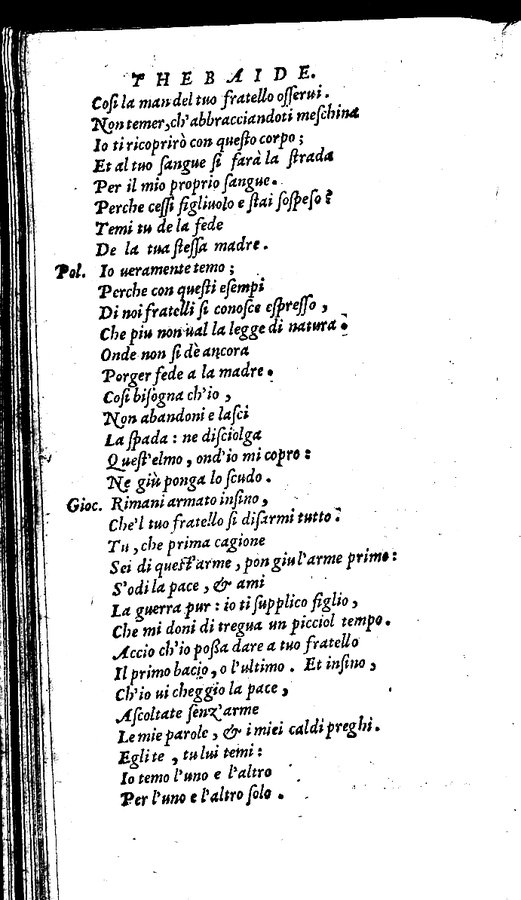 THEBAIDE.
Coſi la man del tuo fratello oſſerui.
Non temer, ch'abbracciandoti meſchina
Io ti ricoprirò con queſto corpo;
Et al tuo ſangue ſi farà la ſtrada
Per il mio proprio ſangue.
Perche ceſſi figliuolo e ſtai ſoſpeſo?
Temi tu de la fede
De la tua ſteſſa madre.
Pol. Io ueramente temo;
Perche con queſti eſempi
Di noi fratelli ſi conoſce eſpreſſo,
Che piu non ual la legge di natura.
Onde non ſi dè ancora
Porger fede a la madre.
Coſi biſogna ch'io,
Non abandoni e laſci
La ſpada: ne diſciolga
Queſt'elmo, ond'io mi copro:
Ne giù ponga lo ſcudo.
Gioc. Rimani armato inſino,
Che'l tuo fratello ſi diſarmi tutto:
Tu, che prima cagione
Sei di queſt'arme, pon giu l'arme prima:
S'odi la pace, & ami
La guerra pur: io ti ſupplico figlio,
Che mi doni di tregua un picciol tempo.
Accio ch'io poßa dare a tuo fratello
Il primo bacio, o l'ultimo. Et inſino,
Ch'io ui cheggio la pace,
Aſcoltate ſenz'arme
Le mie parole, & i miei caldi preghi.
Egli te, tu lui temi:
Io temo l'uno e l'altro
Per l'uno e l'altro ſolo.